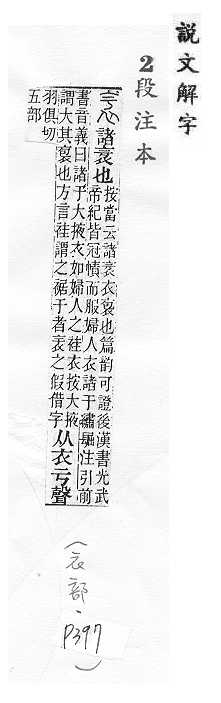 說文解字
2段注本
諸衧也按當云諸衧衣袌也篇韵可證後漢書光武
帝紀皆冠幘而服婦人衣諸于繡𧝎注引前
書音義曰諸于大掖衣如婦人之袿衣按大掖
謂大其袌也方言袿謂之裾于者衧之假借字从衣亏聲
羽俱切
五部
(衣部·P397)